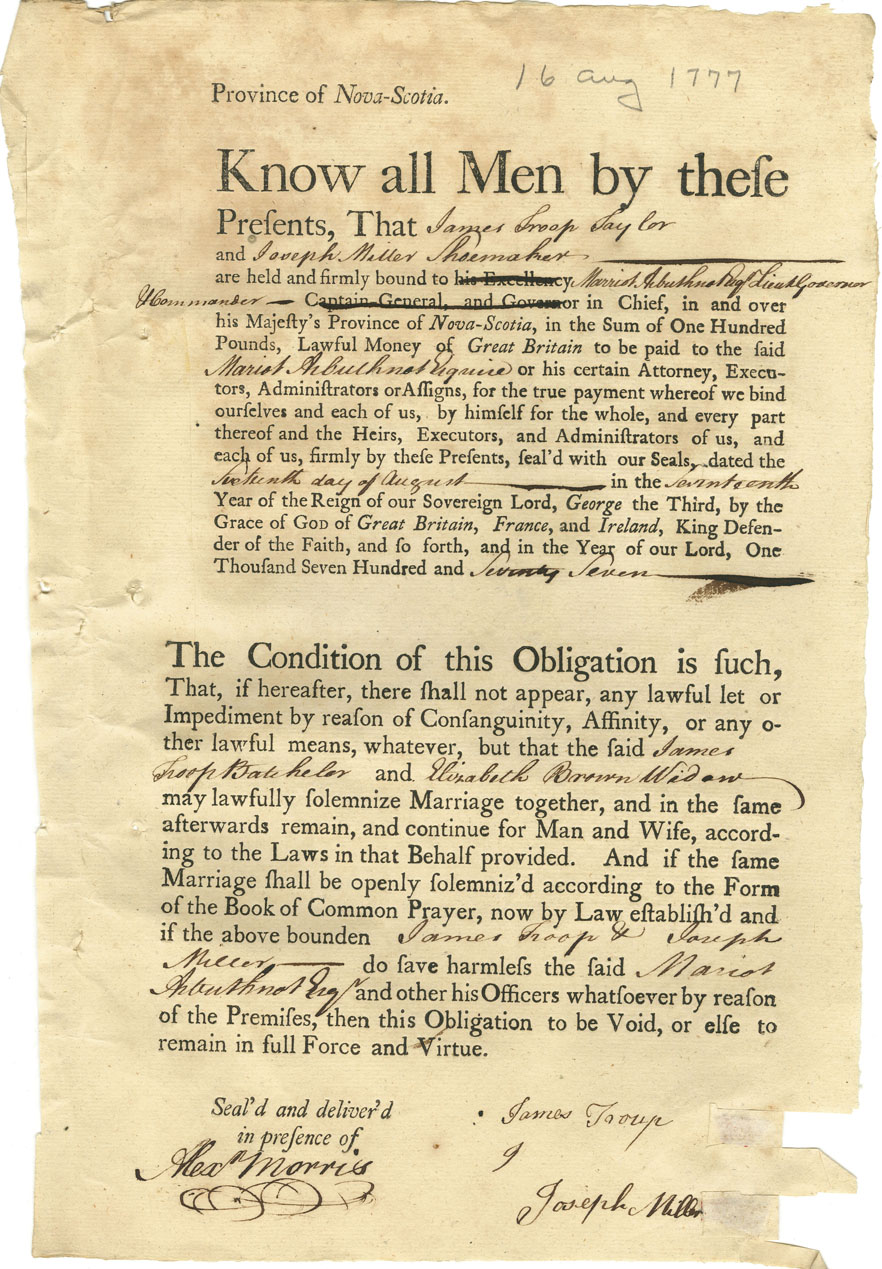 16 Aug 1777
Province of Nova-Scotia.
Know all Men by theſe
Preſents, That James Troop Taylor
and Joseph Miller Shoemaker
are held and firmly bound to his Excellency, Marriot Arbuthnot Esqr. Lieut. Governor
& Commander Captain-General, and Governor in Chief, in and over
his Majeſty's Province of Nova-Scotia, in the Sum of One Hundred
Pounds, Lawful Money of Great Britain to be paid to the ſaid
Mariot Arbuthnot Esquire or his certain Attorney, Execu-
tors, Adminiſtrators or Aſſigns, for the true payment whereof we bind
ourſelves and each of us, by himſelf for the whole, and every part
thereof and the Heirs, Executors, and Adminiſtrators of us, and
each of us, firmly by theſe Preſents, ſeal'd with our Seals, dated the
Sixteenth day of August in the Seventeenth
Year of the Reign of our Sovereign Lord, George the Third, by the
Grace of God of Great Britain, France, and Ireland, King Defen-
der of the Faith, and ſo forth, and in the Year of our Lord, One
Thouſand Seven Hundred and Seventy Seven
The Condition of this Obligation is ſuch,
That, if hereafter, there ſhall not appear, any lawful let or
Impediment by reaſon of Conſanguinity, Affinity, or any o-
ther lawful means, whatever, but that the ſaid James
Troop Batchelor and Elizabeth Brown Widow
may lawfully ſolemnize Marriage together, and in the ſame
afterwards remain, and continue for Man and Wife, accord-
ing to the Laws in that Behalf provided. And if the ſame
Marriage ſhall be openly ſolemniz'd according to the Form
of the Book of Common Prayer, now by Law eſtabliſh'd and
if the above bounden James Troop & Joseph
Miller do ſave harmleſs the ſaid Mariot
Arbuthnot Esqr. and other his Officers whatſoever by reaſon
of the Premiſes, then this Obligation to be Void, or elſe to
remain in full Force and Virtue.
Seal'd and deliver'd
in preſence of
James Troup
Alexr. Morris
J
Joseph Miller